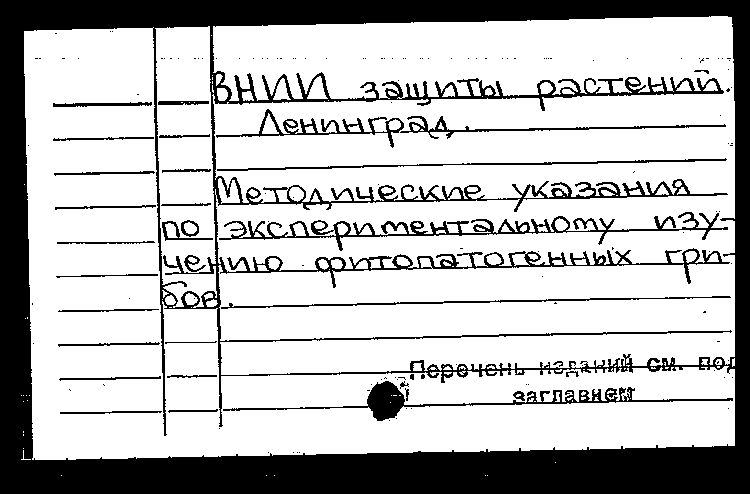 ВНИИ защиты растений.
Ленинград.
Методические указания
по экспериментальному изу-
чению фитопатогенных гри-
бов.
Перечень изданий см. под
заглавием